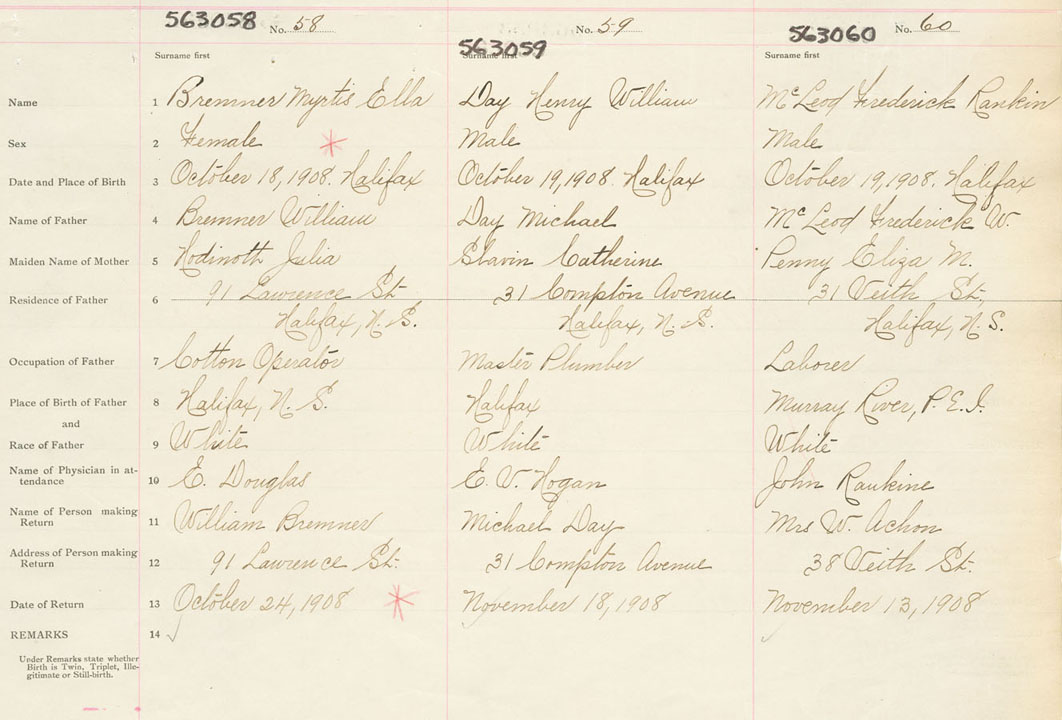 563058 No. 58 563059 No. 59 563060 No. 60
Surname first Surname first Surname first
Name 1 Bremner Myrtis Ella Day Henry William McLeod Frederick Rankin
Sex 2 Female Male Male
Date and Place of Birth 3 October 18, 1908. Halifax October 19, 1908. Halifax October 19, 1908. Halifax
Name of Father 4 Bremner William Day Michael McLeod Frederick W.
Maiden Name of Mother 5 Hodinoth Julia Slavin Catherine Penny Eliza M.
Residence of Father 6 91 Lawrence St. 31 Compton Avenue 31 Veith St.,
Halifax, N. S. Halifax, N. S. Halifax, N. S.
Occupation of Father 7 Cotton Operator Master Plumber Laborer
Place of Birth of Father 8 Halifax, N. S. Halifax Murray River, P. E. I.
and
Race of Father 9 White White White
Name of Physician in at-
tendance 10 E. Douglas E. V. Hogan John Rankine
Name of Person making
Return 11 William Bremner Michael Day Mrs W. Achon
Address of Person making
Return 12 91 Lawrence St. 31 Compton Avenue 38 Veith St.
Date of Return 13 October 24, 1908 November 18, 1908 November 13, 1908
REMARKS 14
Under Remarks state whether
Birth is Twin, Triplet, Ille-
gitimate or Still-birth.